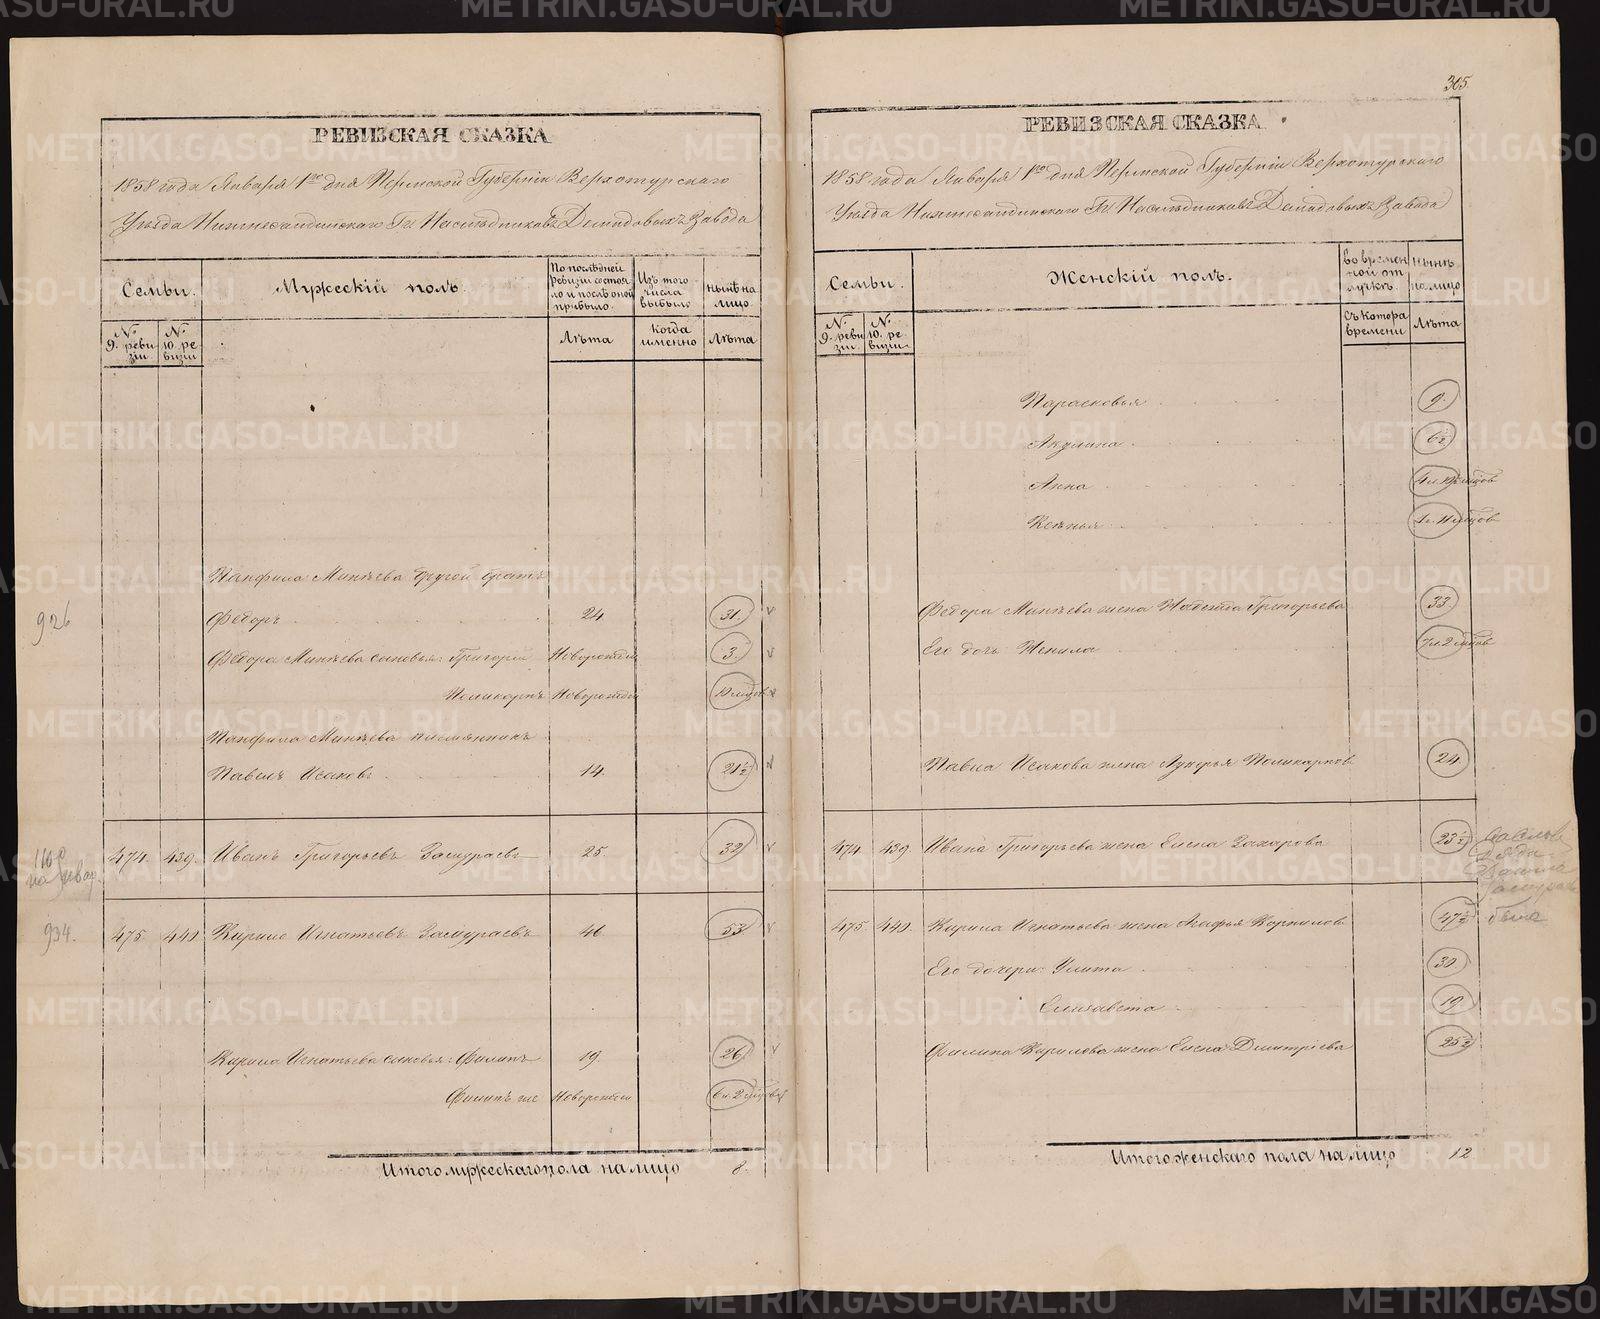 305.
РЕВИЗСКАЯ СКАЗКА
1858 года Января 1го дня Пермской Губерніи Верхотурскаго
Уѣзда Нижнесалдинскаго Гг. Наслѣдниковъ Демидовыхъ Завода
Семьи.
Мужескій полъ.
По послѣдней ревизіи состояло и послѣ оной прибыло.
Изъ того числа выбыло
нынѣ на лицо.
№ 9. ревизіи
№ 10. ревизіи
Лѣта
когда именно
Лѣта
Панфила Минѣева другой братъ
926
Федоръ 24. 31.
Федора Минѣева сыновья: Григорій Новорожден 3.
Поликарпъ Новорожден 10 мѣцов
Панфила Минѣева племянникъ
Павелъ Исаковъ 14. 21½
474. 439. Иванъ Григорьевъ Замураевъ 25. 32
934.
475. 440. Кирило Игнатьевъ Замураевъ 46. 53.
Кирила Игнатьева сыновья: Филипъ 19. 26.
Филипъ же Новорожден 6 л. 2 мѣцовъ
Итого мужескаго пола на лицо 8.
РЕВИЗСКАЯ СКАЗКА
1858 года Января 1го дня Пермской Губерніи Верхотурскаго
Уѣзда Нижнесалдинскаго Гг. Наслѣдниковъ Демидовыхъ Завода
Семьи.
Женскій полъ.
Во временной отлучкѣ.
нынѣ на лицо
№ 9. ревизіи
№ 10. ревизіи
Съ котора времени
Лѣта
Парасковья 9.
Акулина 6½
Анна
Ксѣнья
Федора Минѣева жена Надежда Григорьева 33.
Его дочь Ненила 7 л. 2 мѣцов
Павла Исакова жена Лукерья Поликарпов 24.
474. 439. Ивана Григорьева жена Елена Захарова 23½
475. 440. Кирила Игнатьева жена Агафья Корнилов 47½
Его дочери: Улита 30
Елизавета 19
Филипа Кирилова жена Елена Дмитріева 25½
Итого женскаго пола на лицо 12
METRIKI.GASO-URAL.RU